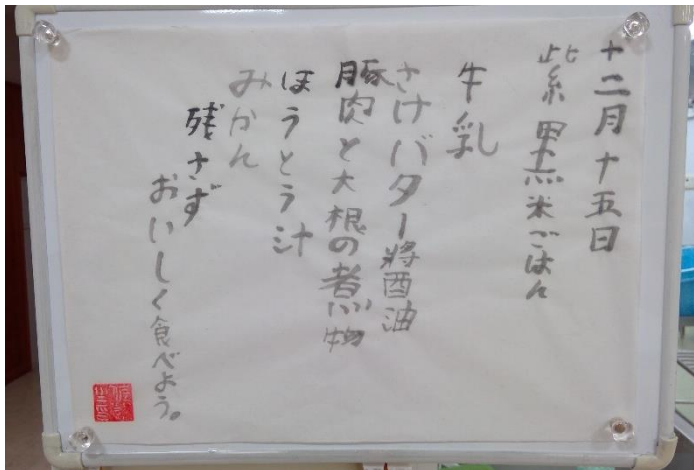 十二月十五日
紫黒米ごはん
牛乳
さけバター醬油
豚肉と大根の煮物
ほうとう汁
みかん
残さず
おいしく食べよう。